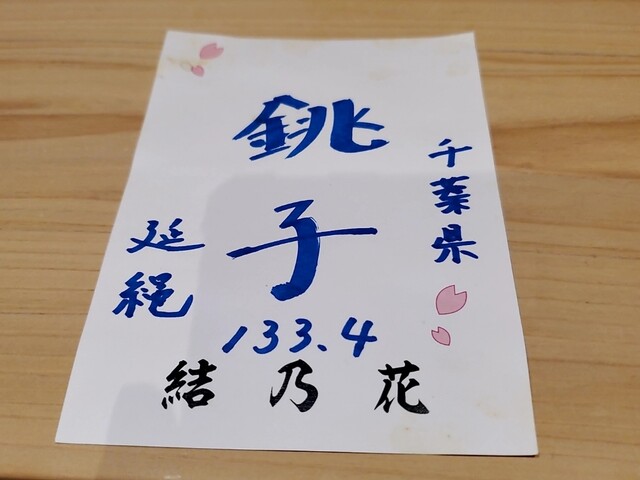 千葉県
銚子
延縄
133.4
結乃花